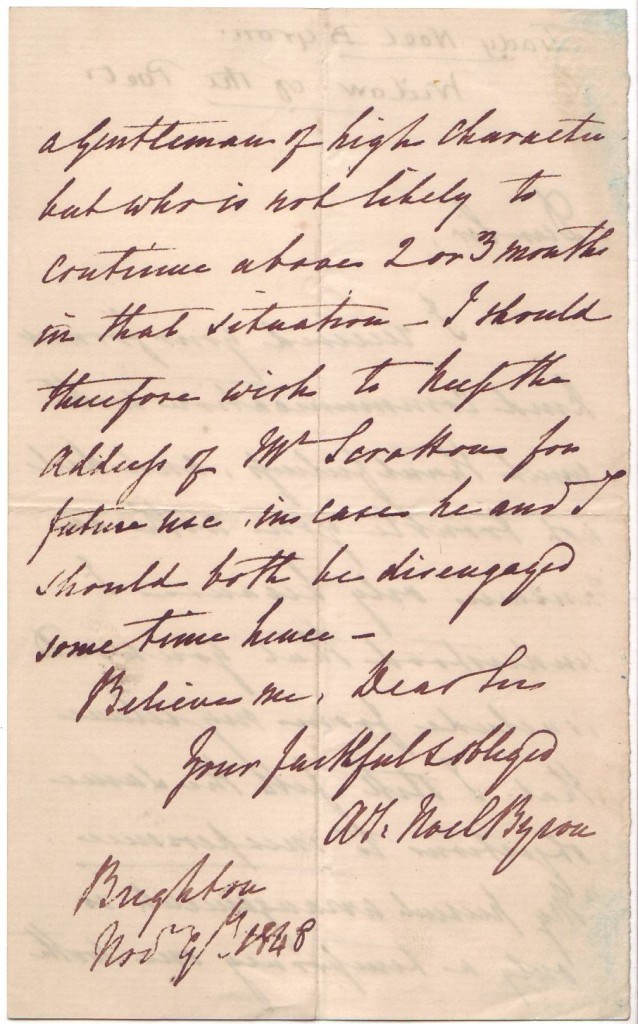 a Gentleman of high character
but who is not likely to
continue above 2 or 3 months
in that situation – I should
therefore wish to keep the
Address of Mr Scratton for
future use, in case he and I
should both be disengaged
some time hence –
Believe me, Dear Sir
Your faithful & obliged
A I. Noel Byron
Brighton
Novr 9th 1848